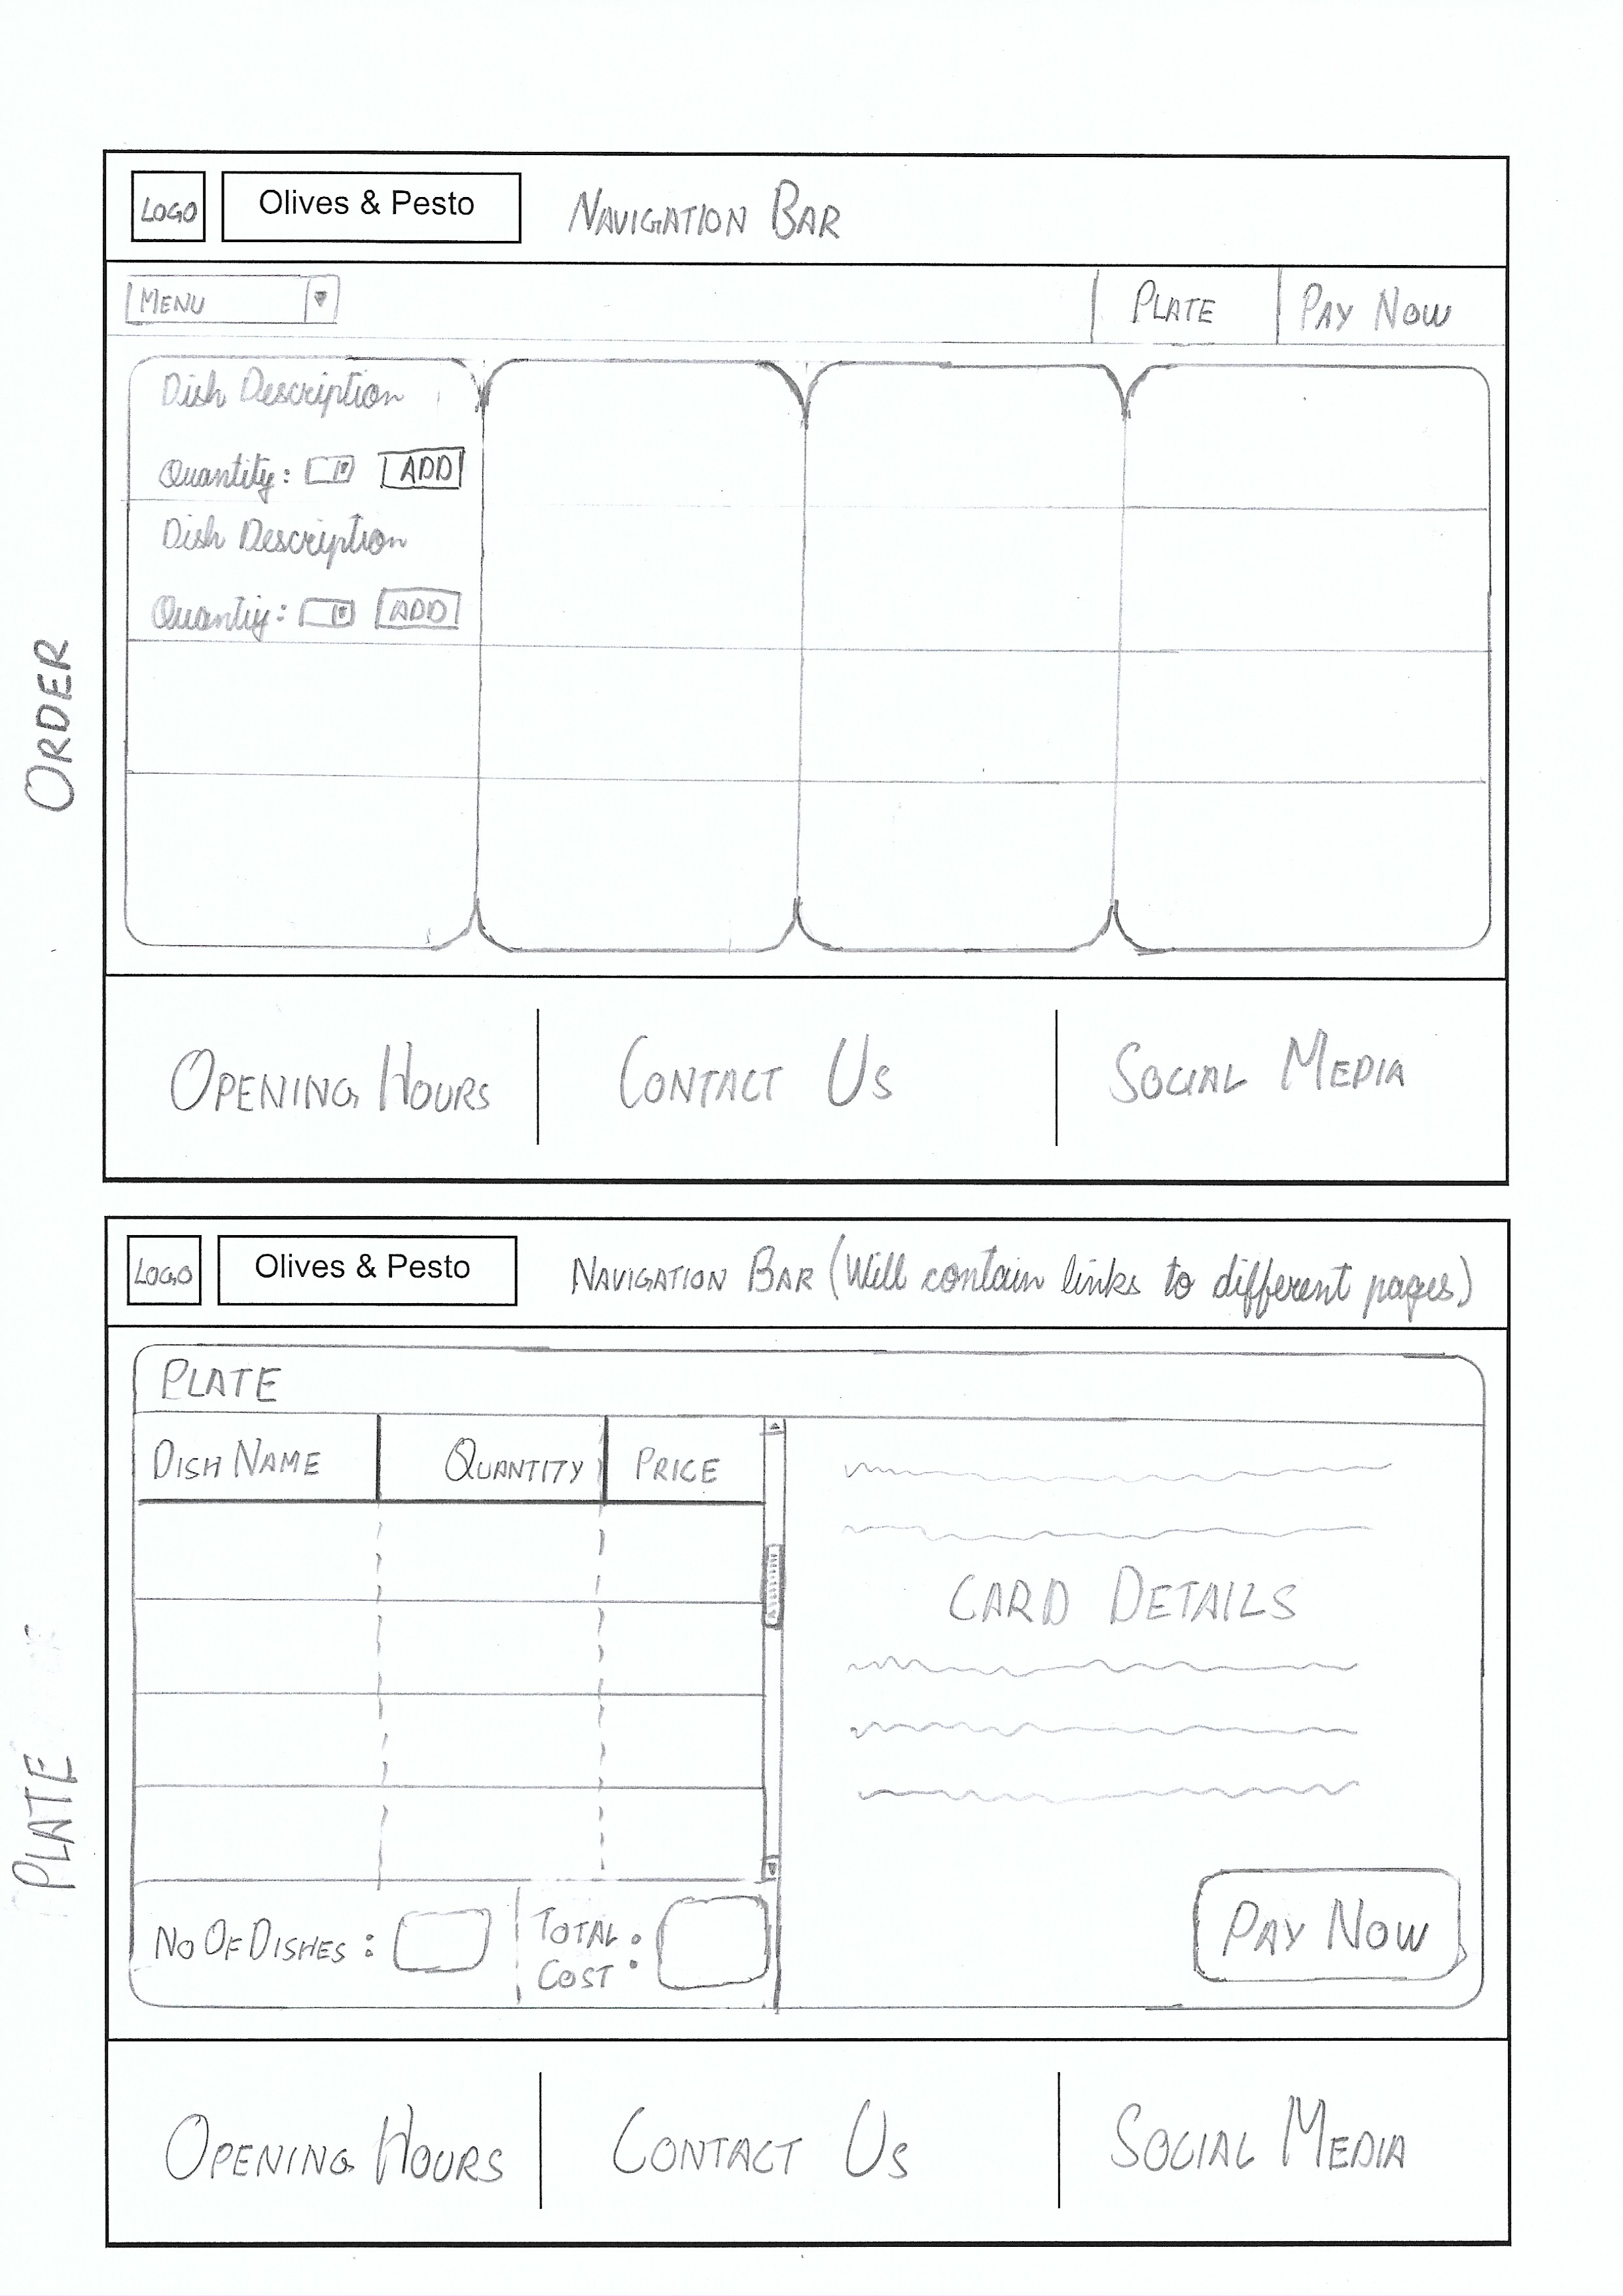 ORDER
LOGO
Olives & Pesto
NAVIGATION BAR
MENU
PLATE
PAY NOW
Dish Description
Quantity:
ADD
Dish Description
Quantiy:
ADD
OPENING HOURS
CONTACT US
SOCIAL MEDIA
PLATE
LOGO
Olives & Pesto
NAVIGATION BAR (Will contain links to different pages)
PLATE
DISH NAME
QUANTITY
PRICE
CARD DETAILS
NO OF DISHES :
TOTAL :
COST
PAY NOW
OPENING HOURS
CONTACT US
SOCIAL MEDIA